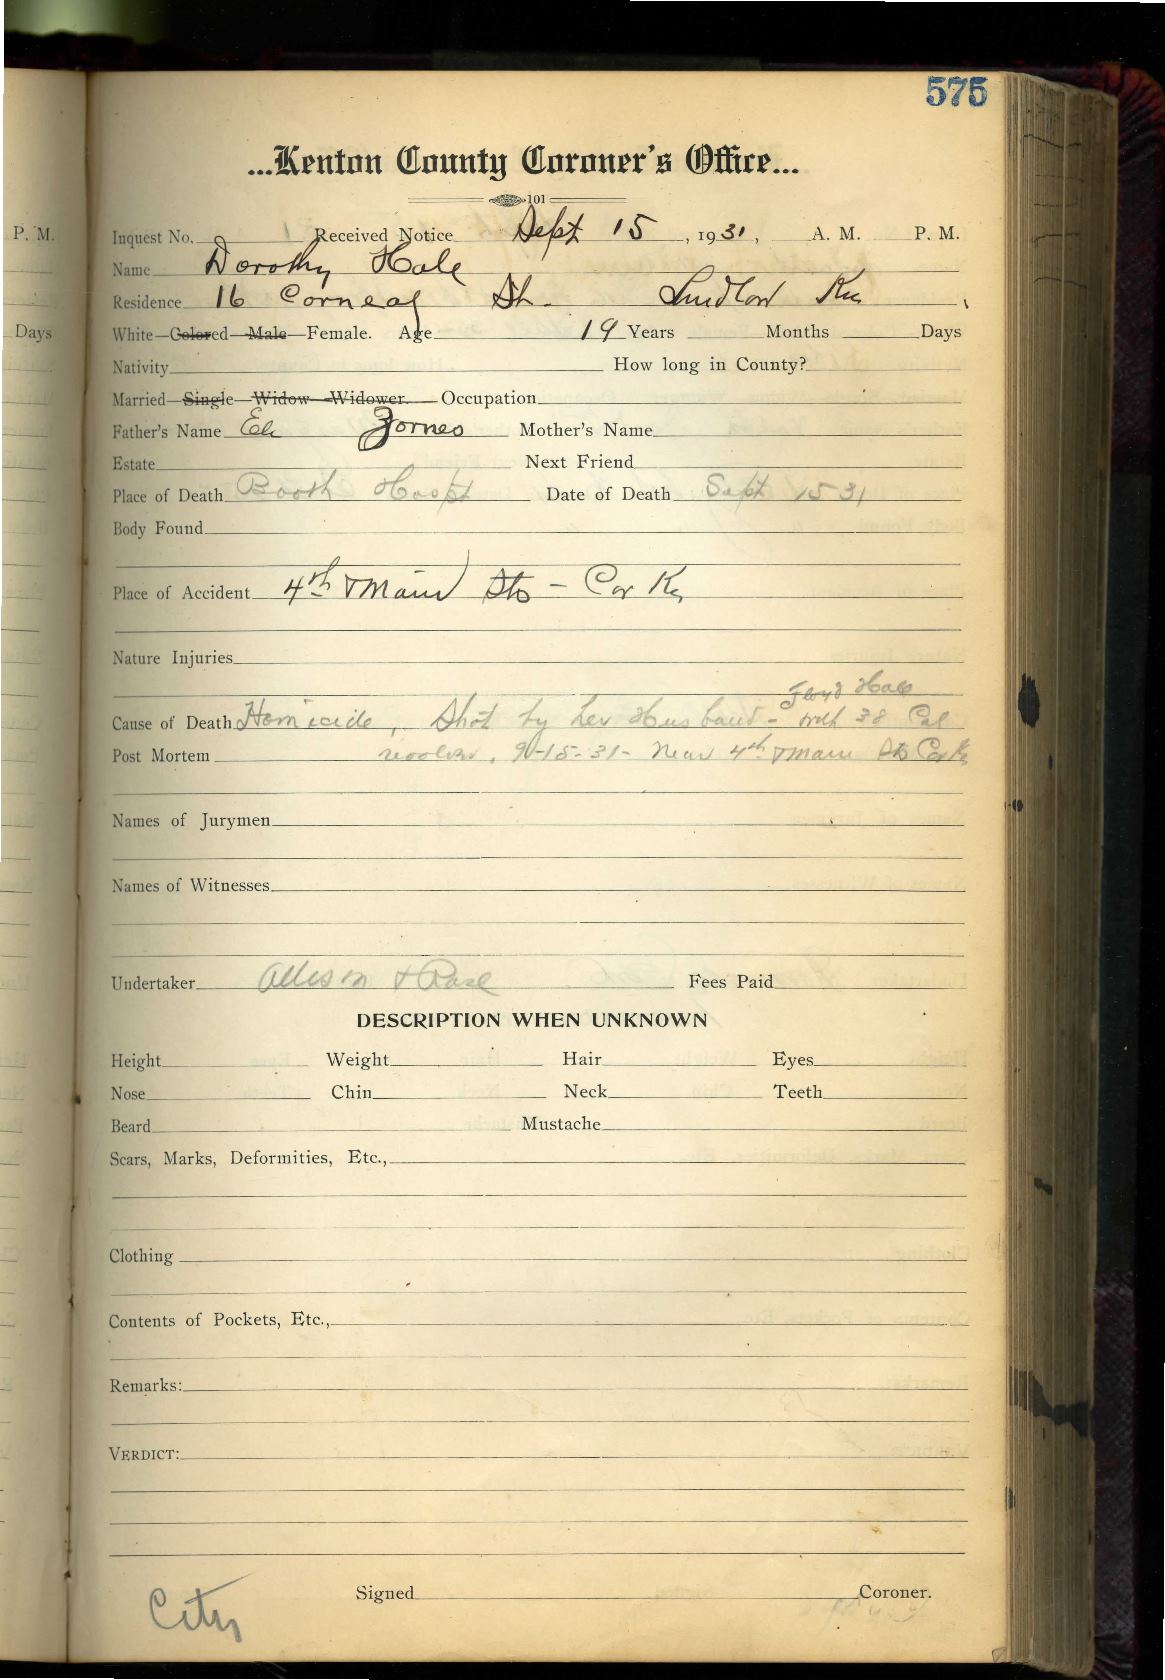 575
...Kenton County Coroner's Office...
101
P. M.
Inquest No. Received Notice Sept 15, 1931, A. M. P. M.
Name Dorothy Hale
Residence 16 Corneal St. Ludlow Ky
Days
White—Colored—Male—Female. Age 19 Years Months Days
Nativity How long in County?
Married—Single—Widow—Widower. Occupation
Father's Name Eli Zornes Mother's Name
Estate Next Friend
Place of Death Booth Hospt Date of Death Sept 15 31
Body Found
Place of Accident 4th & Main Sts - Cov Ky
Nature Injuries
Floyd Hale
Cause of Death Homicide, Shot by her Husband - with 38 Cal
Post Mortem revolver. 9-15-31- Near 4th & Main Sts Cov Ky
Names of Jurymen
Names of Witnesses
Undertaker Allison & Rose Fees Paid
DESCRIPTION WHEN UNKNOWN
Height Weight Hair Eyes
Nose Chin Neck Teeth
Beard Mustache
Scars, Marks, Deformities, Etc.,
Clothing
Contents of Pockets, Etc.,
Remarks:
VERDICT:
Signed Coroner.
City